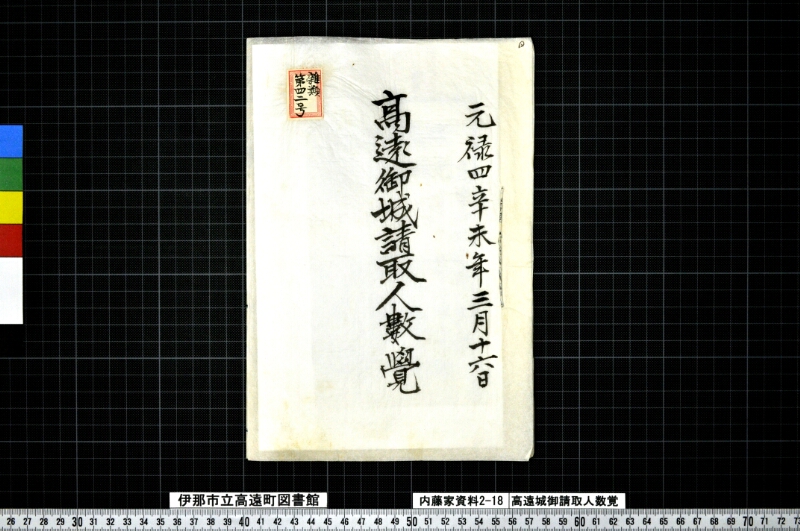 元禄四辛未年三月十六日
高遠御城請取人數覺
雑類
第四二号
伊那市立高遠町図書館
内藤家資料2-18
高遠城御請取人数覚
26 27 28 29 30 31 32 33 34 35 36 37 38 39 40 41 42 43 44 45 46 47 48 49 50 51 52 53 54 55 56 57 58 59 60 61 62 63 64 65 66 67 68 69 70 71 72